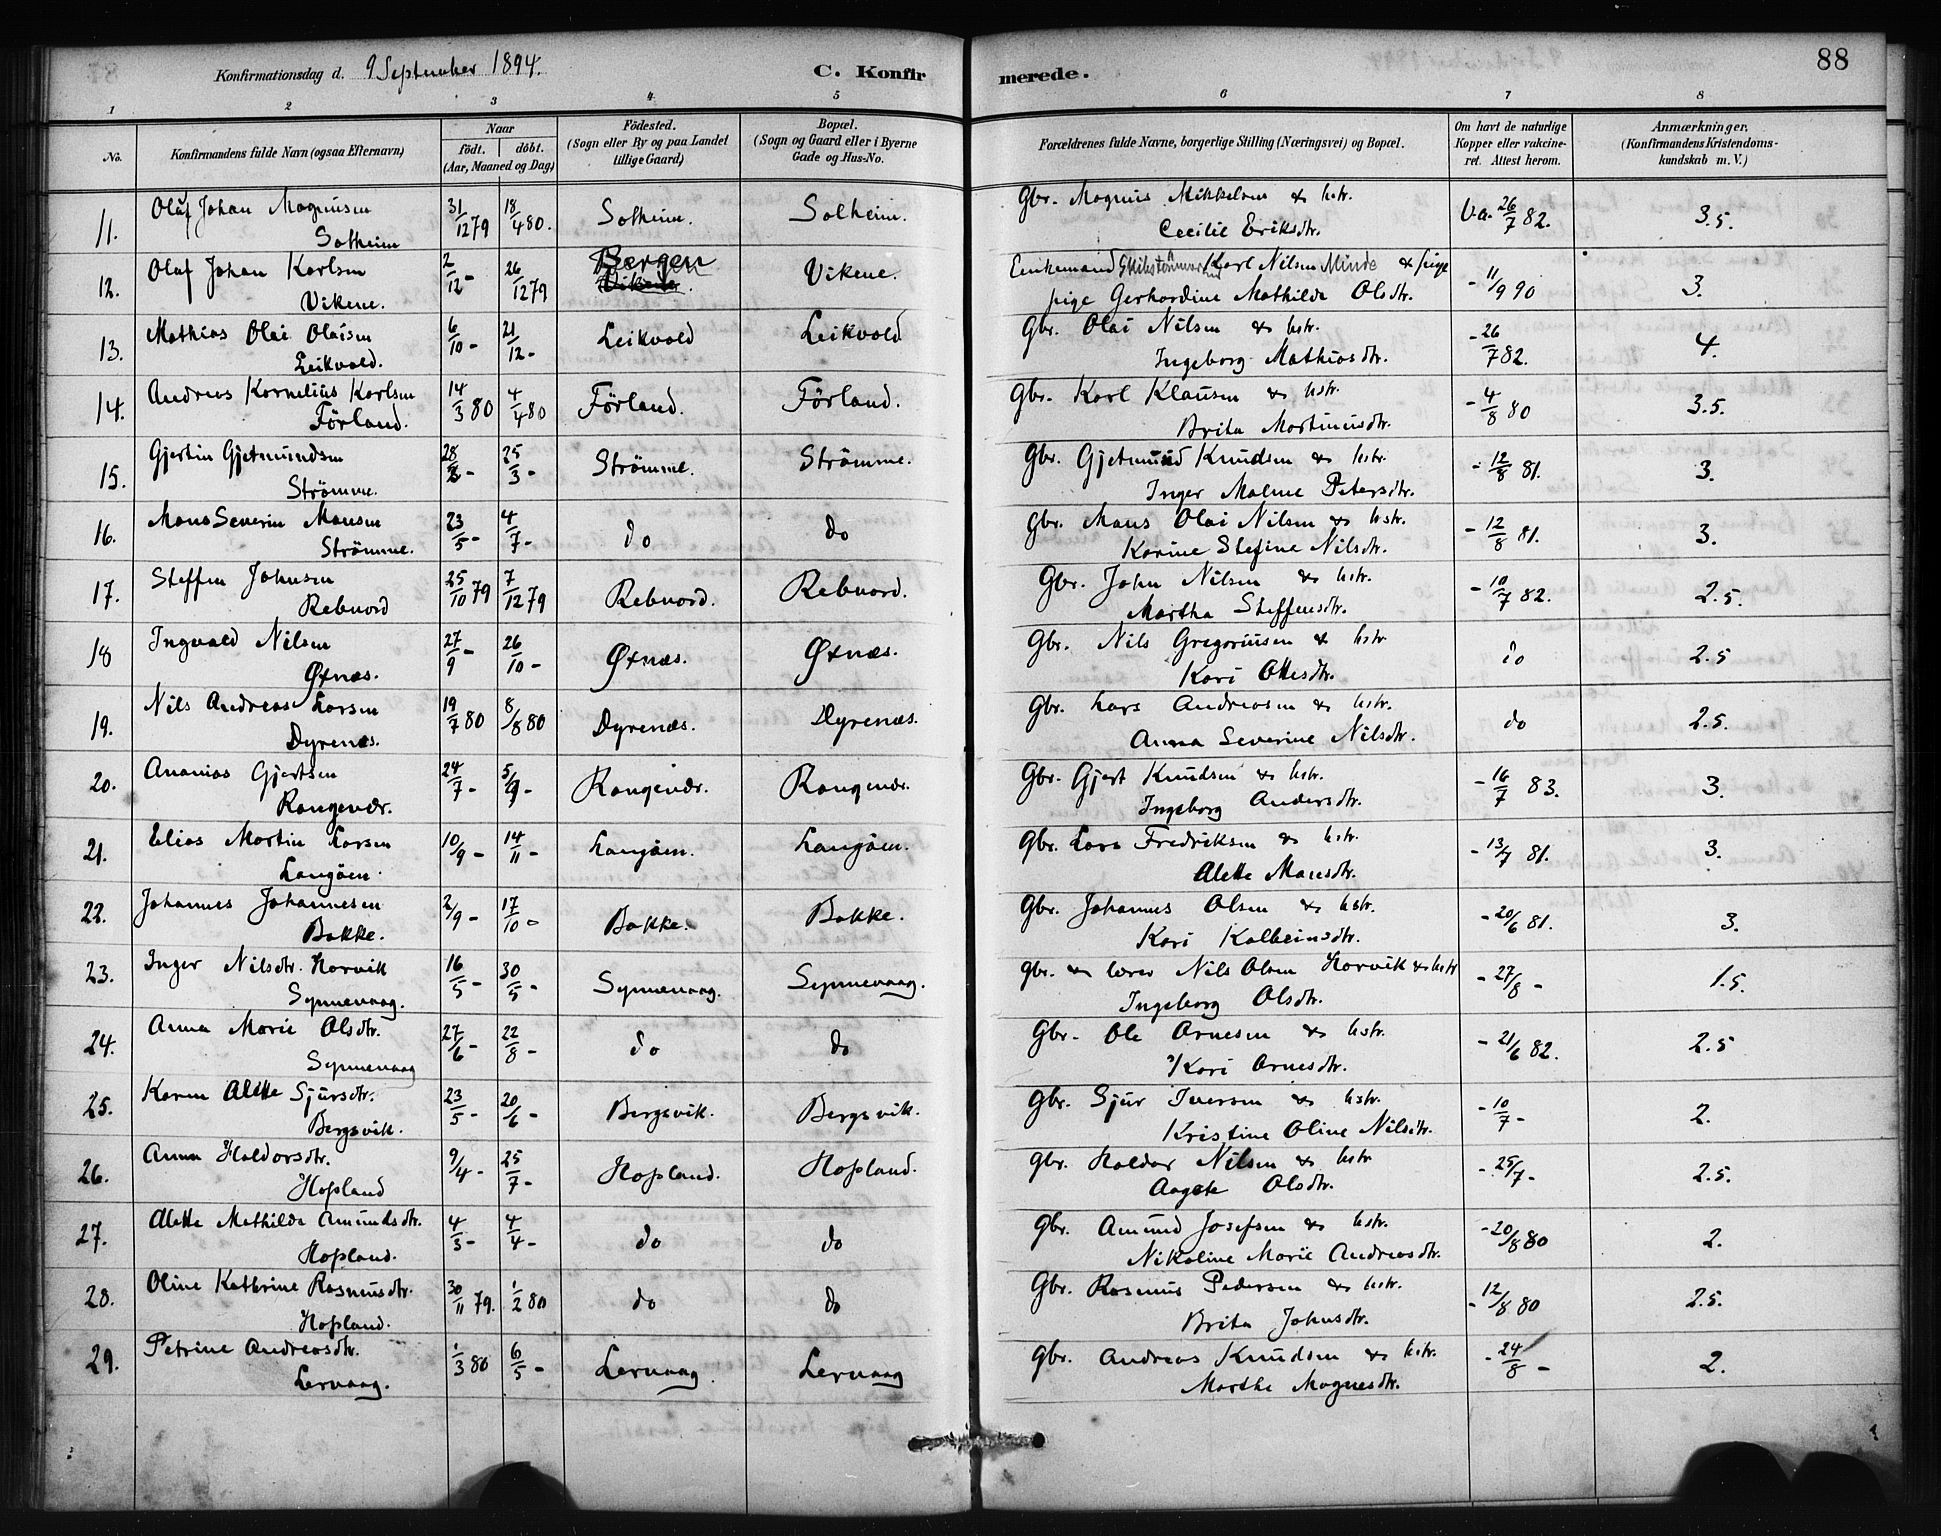 Konfirmationsdag d. 9 September 1894. C. Konfirmerede. 88
1 2 3 4 5 6 7 8
No. Konfirmandens fulde Navn (ogsaa Efternavn) Naar födt. döbt. (Aar, Maaned og Dag) Födested. (Sogn eller By og paa Landet tillige Gaard) Bopæl. (Sogn og Gaard eller i Byerne Gade og Hus-No. Forældrenes fulde Navne, borgerlige Stilling (Næringsvei) og Bopæl. Om havt de naturlige Kopper eller vakcineret. Attest herom. Anmærkninger. (Konfirmandens Kristendomskundskab m. V.)
11. Oluf Johan Magnusen 31/12 79 18/4 80. Solheim. Solheim. Gbr. Magnus Mikkelsen & hstr. Va. 26/7 82. 3.5.
Solheim Cecilie Eriksdtr.
12. Olaf Johan Karlsen 2/12 - 26/12 79 Bergen Vikene. Vikene. Enkemand Karl Nilsen Minde & pige - 11/9 90 3.
Vikene. pige Gerhardine Mathilde Olsdtr.
13. Mathias Olai Olaisen 6/10 - 21/12 - Leikvold Leikvold Gbr. Olai Nilsen & hstr. - 26/7 82. 4.
Leikvold. Ingeborg Mathiasdtr.
14. Andreas Kornelius Karlsen 14/3 80 4/4 80 Förland. Förland. Gbr. Karl Klausen & hstr. - 4/8 80 3.5.
Förland. Brita Martinusdtr.
15. Gjertin Gjetmundsen 28/2 - 25/3 - Strömme. Strömme. Gbr. Gjetmund Knudsen & hstr. - 12/8 81. 3.
Strömme. Inger Malene Petersdtr.
16. Mons Severin Monsen 23/5 - 4/7 - do do Gbr. Mons Olai Nilsen & hstr. - 12/8 81. 3.
Strömme. Karine Stefine Nilsdtr.
17. Steffen Johnsen 25/10 79 7/12 79 Rebnord. Rebnord. Gbr. John Nilsen & hstr. - 10/7 82. 2.5.
Rebnord Martha Steffensdtr.
18 Ingvald Nilsen 27/9 - 26/10 - Øxnæs. Øxnæs. Gbr. Nils Gregoriusen & hstr do 2.5
Øxnæs. Kari Ottesdtr.
19. Nils Andreas Larsen 19/7 80 8/8 80 Dyrenæs. Dyrenæs. Gbr. Lars Andreasen & hstr. do 2.5.
Dyrenæs. Anna Severine Nilsdtr.
20. Ananias Gjertsen 24/7 - 5/9 - Rongevær. Rongevær. Gbr. Gjert Knudsen & hstr. - 16/7 83. 3.
Rongevær. Ingeborg Andersdtr.
21. Elias Martin Larsen 10/9 - 14/11 - Langöen. Langöen. Gbr. Lars Fredriksen & hstr. - 13/7 81. 3.
Langöen. Alette Monsdtr.
22. Johannes Johannesen 2/9 - 17/10 - Bakke. Bakke. Gbr. Johannes Olsen & hstr. - 20/6 81. 3.
Bakke. Kari Kolbeinsdtr.
23. Inger Nilsdtr. Horvik 16/5 - 30/5 - Synnevaag. Synnevaag. gbr. & lærer Nils Olsen Horvik & hstr - 27/8 - 1.5.
Synnevaag. Ingeborg Olsdtr.
24. Anna Marie Olsdtr. 27/6 - 22/8 - do do Gbr. Ole Arnesen & hstr. - 21/6 82. 2.5
Synnevaag Kari Arnesdtr.
25. Karen Alette Sjursdtr. 23/5 - 20/6 - Bergsvik. Bergsvik. Gbr. Sjur Iversen & hstr. - 10/7 - 2.
Bergsvik. Kristine Oline Nilsdtr.
26. Anna Haldorsdtr. 9/4 - 25/7 - Hopland. Hopland. Gbr. Haldor Nilsen & hstr - 25/7 - 2.5.
Hopland Aagate Olsdtr.
27. Alette Mathilde Amundsdtr. 4/3 - 4/4 - do do Gbr. Amund Josefsen & hstr. - 20/8 80 2.
Hopland. Nikoline Marie Andreasdtr.
28. Oline Kathrine Rasmusdtr. 30/11 79. 1/2 80 do do Gbr. Rasmus Pedersen & hstr. - 12/8 80 2.5.
Hopland. Brita Johnsdtr.
29. Petrine Andreasdtr. 1/3 80 6/5 - Lervaag. Lervaag Gbr. Andreas Knudsen & hstr. - 24/8 - 2.
Lervaag. Marthe Magnesdtr.